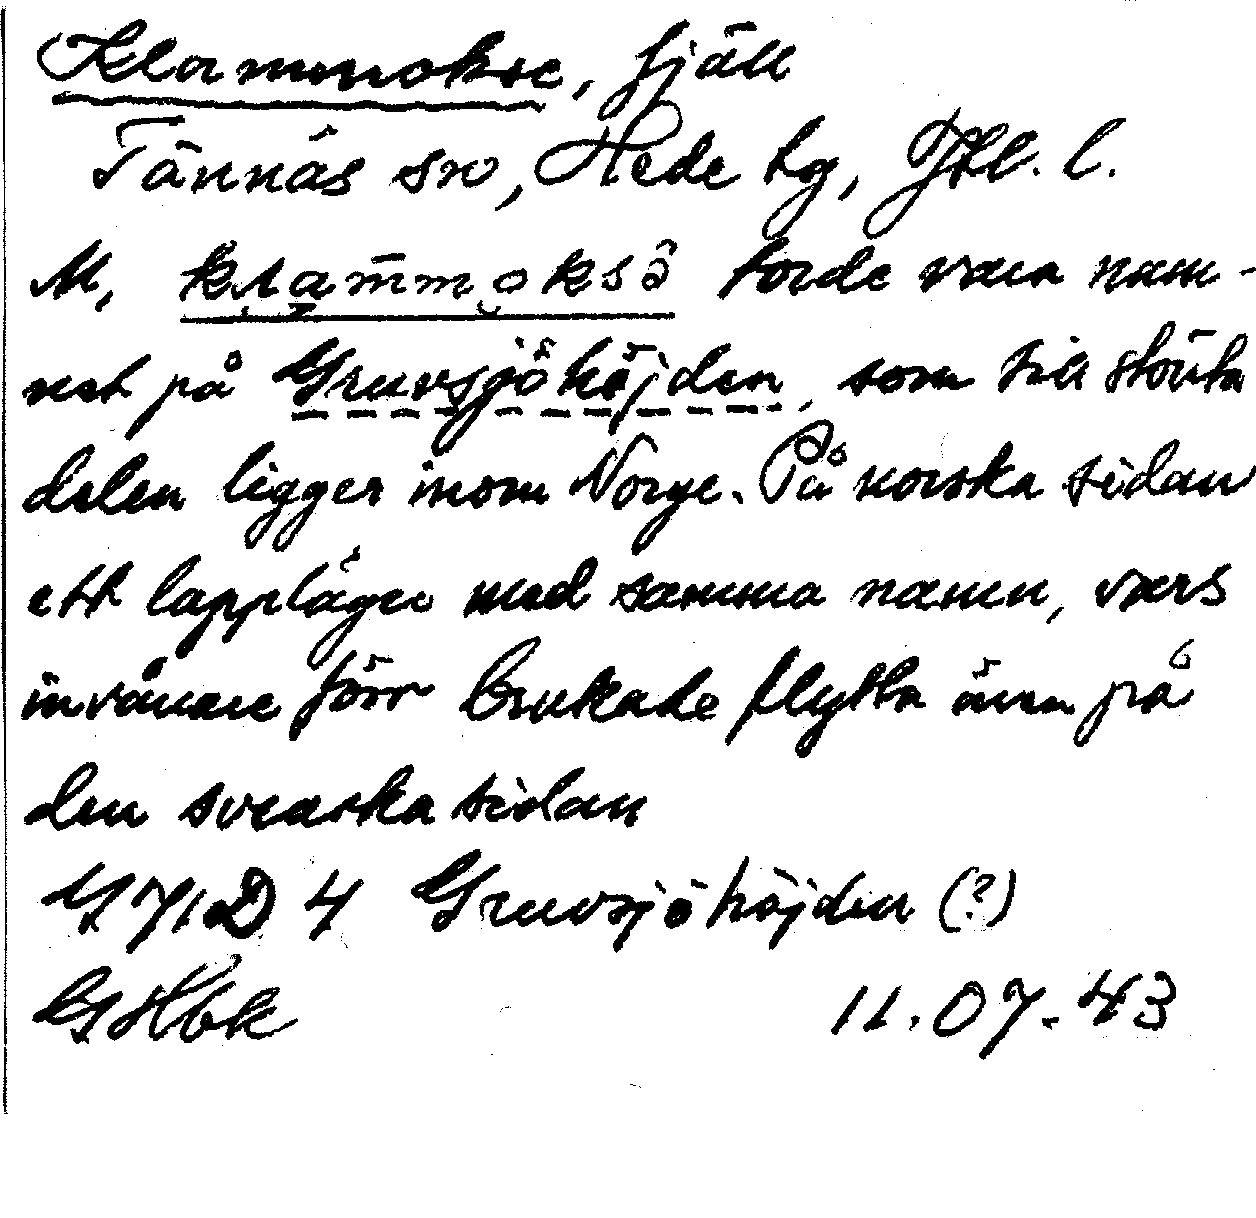 Klammokse, fjäll
Tännäs sn, Hede tg, Jtl. l.
M, klam̄moksē torde vara nam-
net på Gruvsjöhöjden, som till största
delen ligger inom Norge. På norska sidan
ett lappläger med samma namn, vars
invånare förr brukade flytta även på
den svenska sidan
G 71 D 4 Gruvsjöhöjden (?)
GHbk 11.07.43